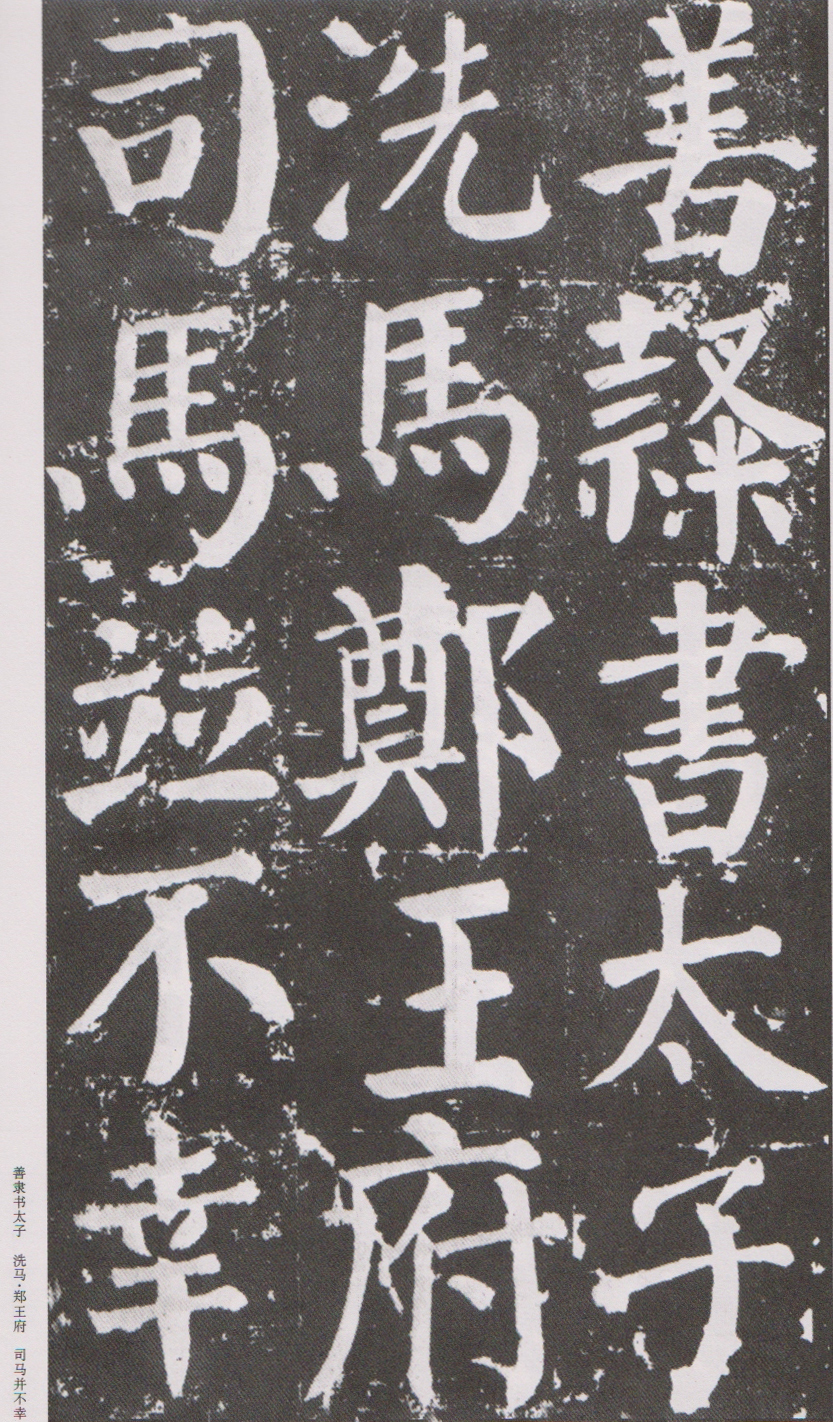 善隸書太子
洗馬鄭王府
司馬並不幸
善隶书太子 洗马·郑王府 司马并不幸